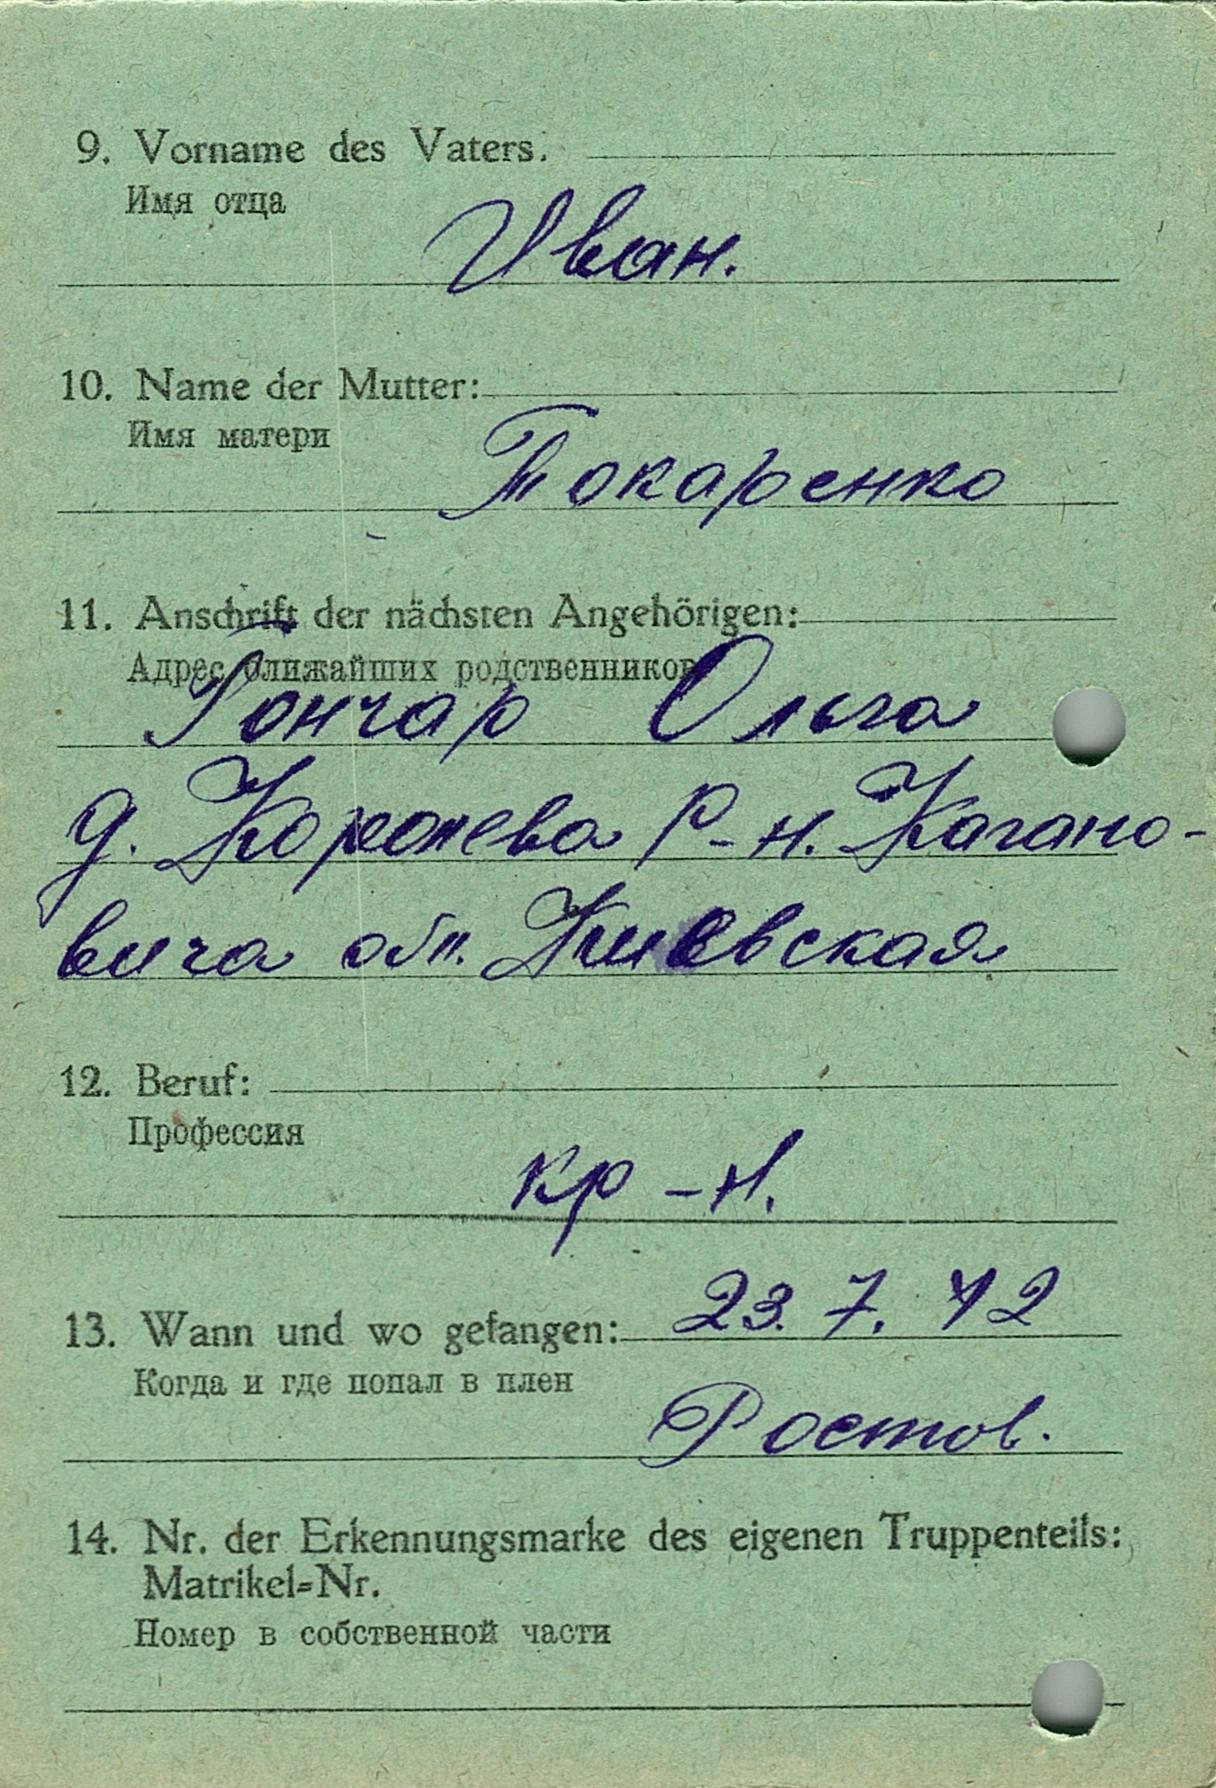 9. Vorname des Vaters.
Имя отца
Иван.
10. Name der Mutter:
Имя матери
Токаренко
11. Anschrift der nächsten Angehörigen:
Адрес ближайших родственников
Гончар Ольга
д. р-н. Кагано-
вича обл. Киевская
12. Beruf:
Профессия
кр-н.
13. Wann und wo gefangen: 23. 7. 42
Когда и где попал в плен
Ростов.
14. Nr. der Erkennungsmarke des eigenen Truppenteils:
Matrikel=Nr.
Номер в собственной части